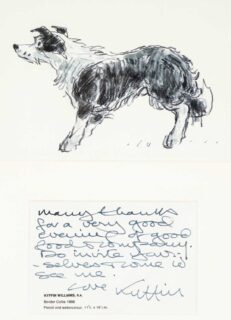 Many thanks
for a very good
evening of good
food & company.
Do invite your-
-selves & come to
see me.
Love Kyffin
KYFFIN WILLIAMS, R.A.
Border Collie 1988
Pencil and watercolour,